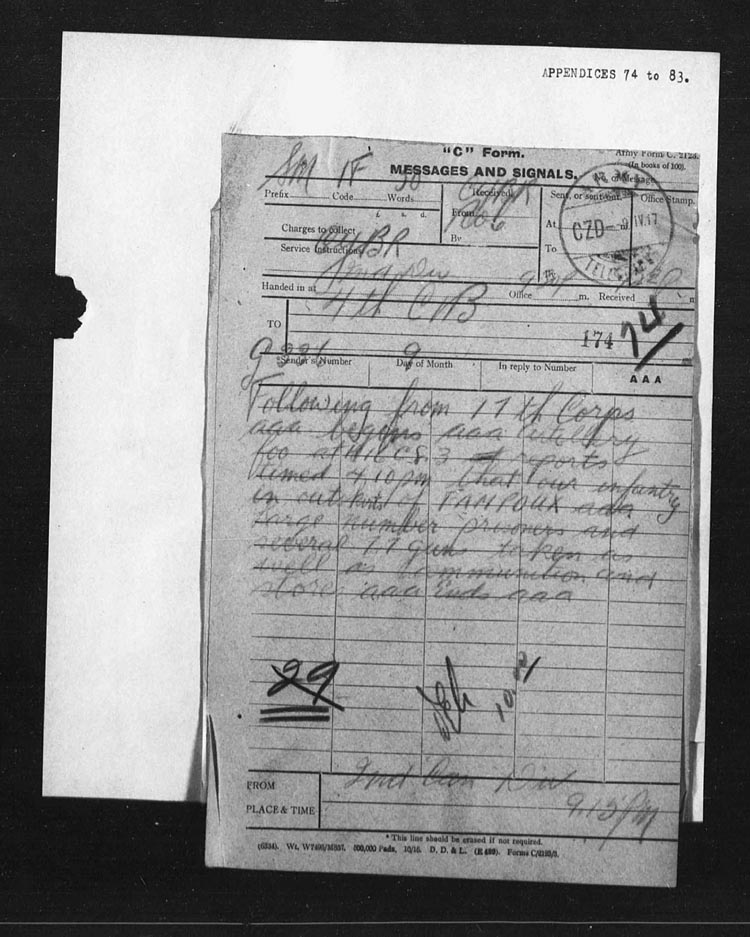 APPENDICES 74 to 83.
"C" Form.
Army Form C. 2123.
(In books of 100).
MESSAGES AND SIGNALS.
No. of Message
SM 1F 50
Prefix Code Words
Received
From
By
Sent, or sent out
At
To
Office Stamp.
CZD 9 IV.17
TELEGRAPHS
£ s. d.
Charges to collect
Service Instructions
Handed in at Office m. Received m
TO 4th CIB
174 74
*Sender's Number Day of Month In reply to Number AAA
9
Following from 17th Corps
aaa begins aaa artillery
foo at reports
timed 4.10 pm that our infantry
in outskirts of FAMPOUX aaa
large number prisoners and
several guns taken as
well as ammunition and
store aaa Ends aaa
29
10.4
FROM 2nd Can Div
PLACE & TIME 9.15 PM
* This line should be erased if not required.
(6334). Wt. W7496/M857. 600,000 Pads. 10/16. D. D. & L. (E 489). Forms C/2123/3.